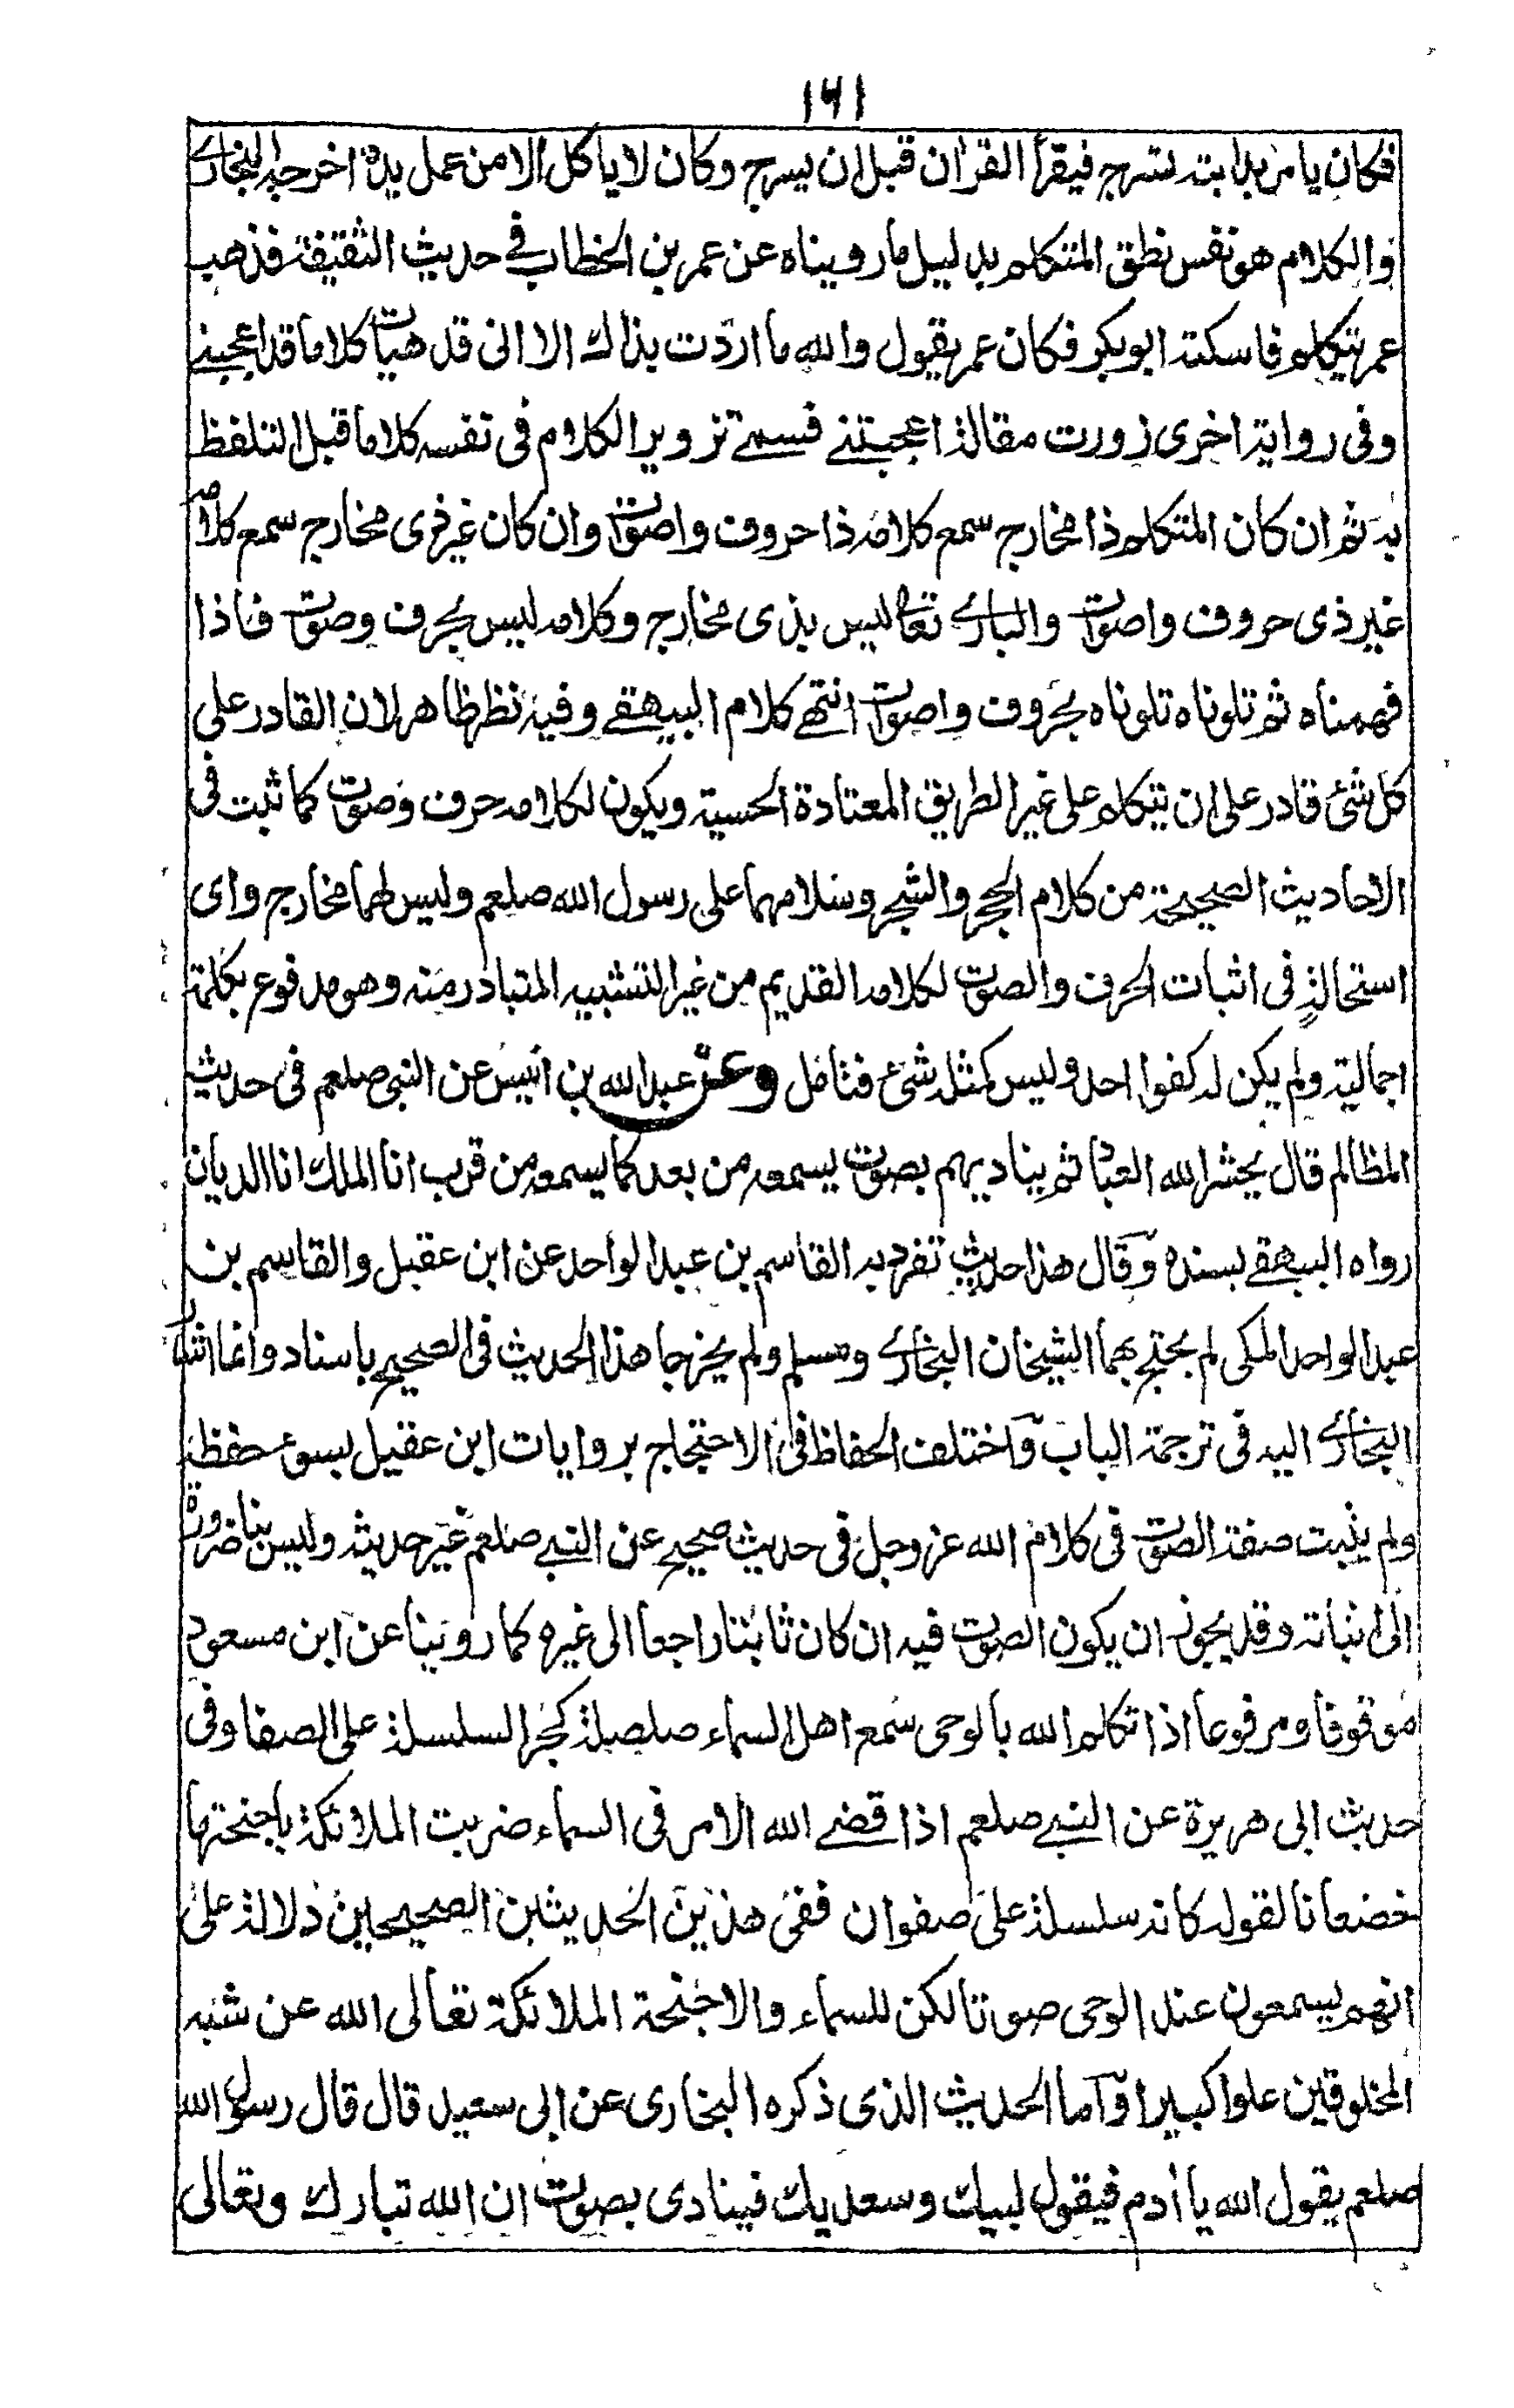 ١٦١
فكان يامر بدابته تسرج فيقرأ القرأن قبل ان يسرج وكان لا ياكل الا من عمل يده اخرجه البخارى
والكلام هو نفس نطق المتكلم بدليل ما رويناه عن عمر بن الخطاب فى حديث الثقيفة فذهب
عمر يتكلم فاسكته ابو بكر فكان عمر يقول والله ما اردت بذاك الا انى قد هيات كلاما قد اعجبنى
وفى رواية اخرى زورت مقالة اعجبتنى فسمى تزوير الكلام فى نفسه كلاما قبل التلفظ
به ثم ان كان المتكلم ذا مخارج سمع كلامه ذا حروف واصوات وان كان غير ذى مخارج سمع كلامه
غير ذى حروف واصوات والبارى تعالى ليس بذى مخارج وكلامه ليس بحرف وصوت فاذا
فهمناه ثم تلوناه تلوناه بحروف واصوات انتهى كلام البيهقى وفيه نظر ظاهر لان القادر على
كل شئ قادر على ان يتكلم على غير الطريق المعتادة الحسية ويكون لكلامه حرف وصوت كما ثبت فى
الاحاديث الصحيحة من كلام الحجر والشجر وسلامهما على رسول الله صلعم وليس لهما مخارج واى
استحالة فى اثبات الحرف والصوت لكلامه القديم من غير التشبيه المتبادر منه وهو مدفوع بكلمة
اجمالية ولم يكن له كفوا احد وليس كمثله شئ فتامل وعن عبد الله بن انيس عن النبى صلعم فى حديث
المظالم قال يحشر الله العباد ثم يناديهم بصوت يسمعه من بعد كما يسمعه من قرب انا الملك انا الديان
رواه البيهقى بسنده وقال هذا حديث تفرد به القاسم بن عبد الواحد عن ابن عقيل والقاسم بن
عبد الواحد المكى لم يحتج بهما الشيخان البخارى ومسلم ولم يخرجا هذا الحديث فى الصحيح باسناد وانما اشار
البخارى اليه فى ترجمة الباب واختلف الحفاظ فى الاحتجاج بروايات ابن عقيل بسوء حفظه
ولم يثبت صفة الصوت فى كلام الله عز وجل فى حديث صحيح عن النبى صلعم غير حديثه وليس بنا ضرورة
الى اثباته وقد يجوز ان يكون الصوت فيه ان كان ثابتا راجعا الى غيره كما روينا عن ابن مسعود
موقوفا ومرفوعا اذا تكلم الله بالوحى سمع اهل السماء صلصلة كجر السلسلة على الصفا وفى
حديث ابى هريرة عن النبى صلعم اذا قضى الله الامر فى السماء ضربت الملائكة باجنحتها
خضعانا لقوله كانه سلسلة على صفوان ففى هذين الحديثين الصحيحين دلالة على
انهم يسمعون عند الوحى صوتا لكن للسماء والاجنحة الملائكة تعالى الله عن شبه
المخلوقين علوا كبيرا واما الحديث الذى ذكره البخارى عن ابى سعيد قال قال رسول الله
صلعم يقول الله يا أدم فيقول لبيك وسعديك فينادى بصوت ان الله تبارك وتعالى